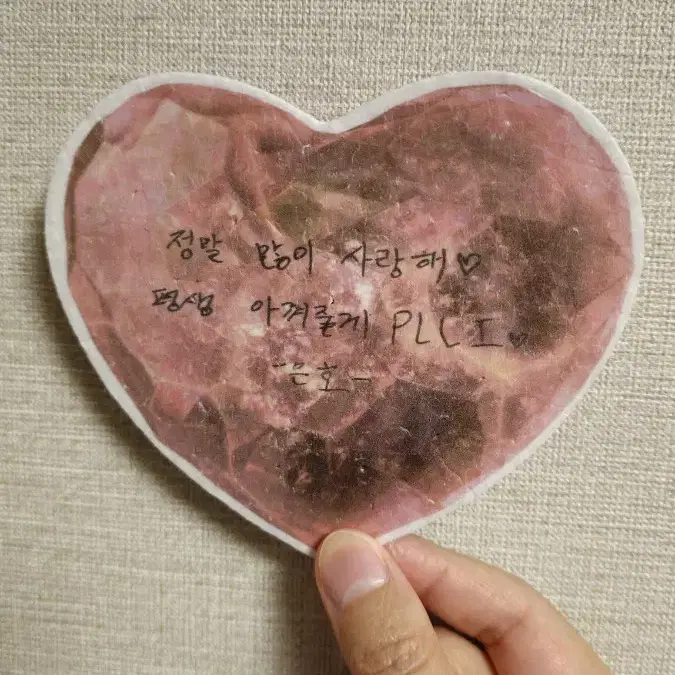 정말 많이 사랑해♡
평생 아껴줄게 PLLI♡
-은호-